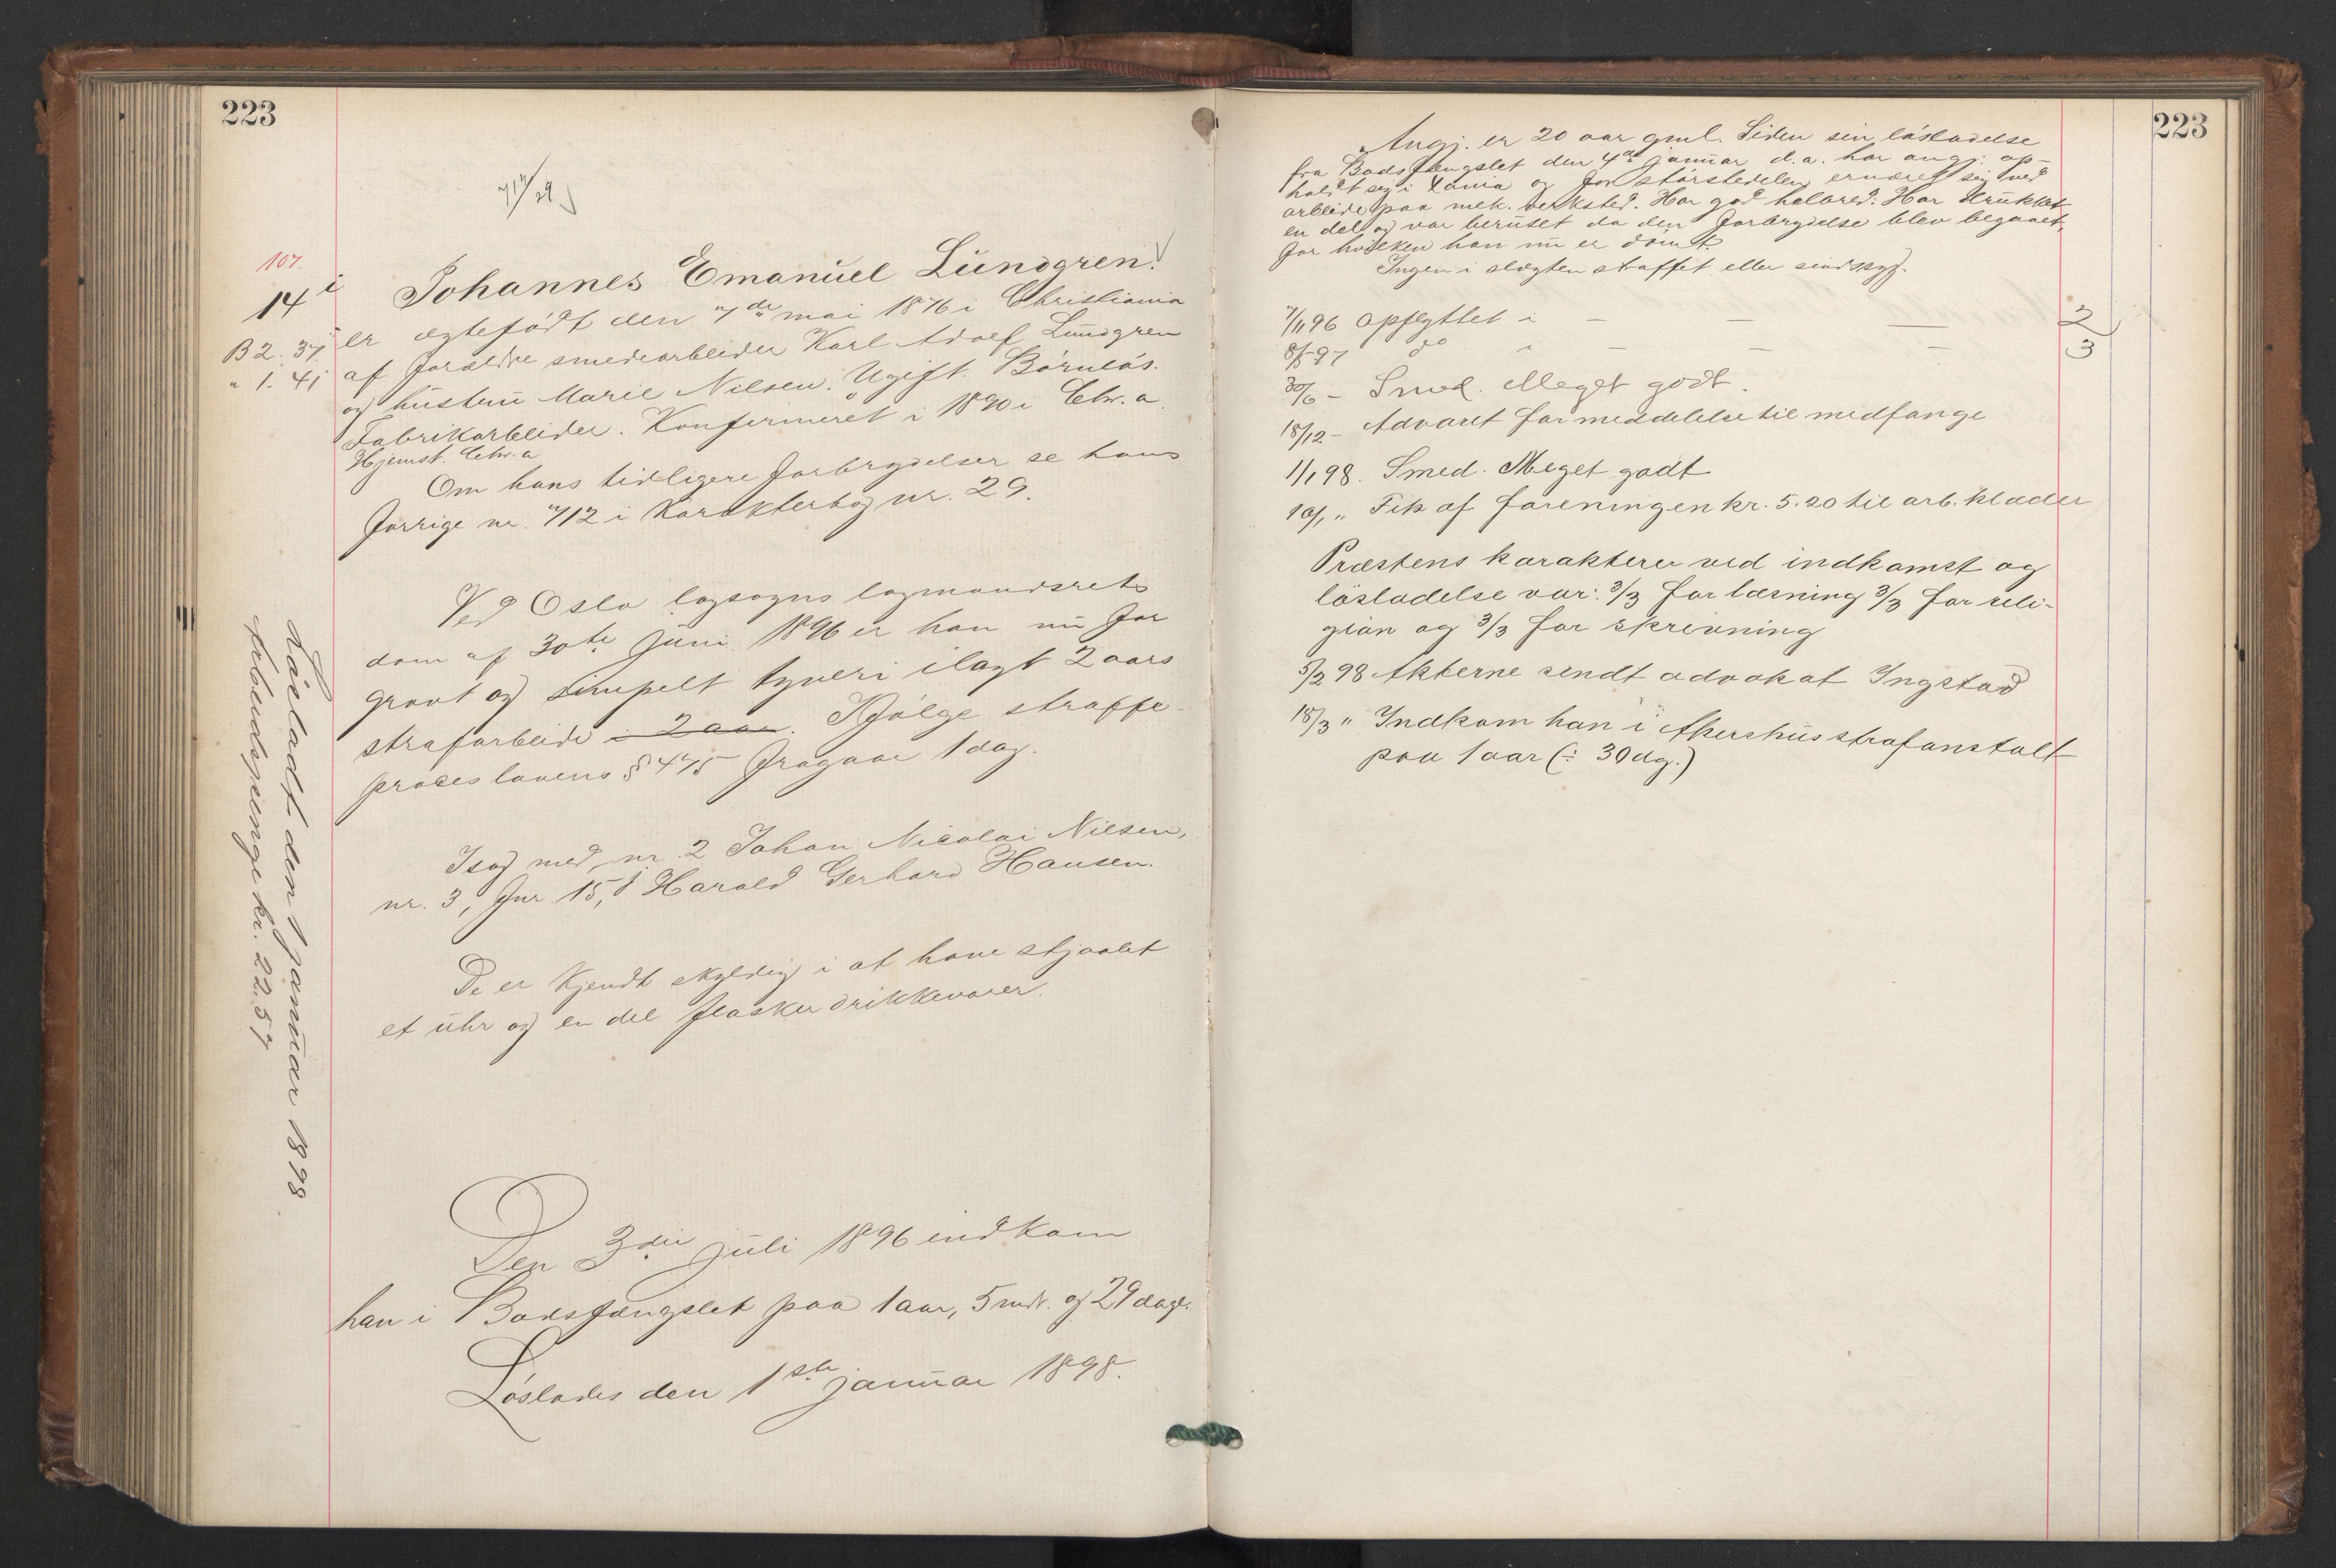 223
712/29
107.
14 i
B 2. 37.
" 1. 41
Johannes Emanuel Lundgren.
er ægtefødt den 7de mai 1876 i Christiania
af forældre smedearbeider Karl Adolf Lundgren
og hustru Marie Nilsen. Ugift. Børnløs.
Fabrikarbeider. Konfirmeret i 1890 i Chr.a.
Hjemst. Chr.a
Om hans tidligere forbrydelser se hans
forrige nr. 712 i Karakterbog nr. 29.
Ved Oslo lagsogns lagmandsrets
dom af 30te juni 1896 er han nu for
grovt og simpelt tyveri ilagt 2 aars
strafarbeide i 2 aar. Ifølge straffe-
proceslovens § 475 fragaar 1 dag.
I sag med nr. 2 Johan Nicolai Nilsen,
nr. 3, fnr. 15, Harald Gerhard Hansen.
De er kjendt skyldig i at have stjaalet
et uhr og en del flasker drikkevarer.
Den 3die juli 1896 indkom
han i Bodsfængslet paa 1 aar, 5 mdr. og 29 dage.
Løslades den 1ste januar 1898.
Løsladt den 1 januar 1898
Arbeidspenge kr. 22.57
223
Angj. er 20 aar gml. Siden sin løsladelse
fra Bodsfængslet den 4de januar d.a. har angj. op-
holdt sig i Xania og for størstedelen ernæret sig ved
arbeide paa mek. verksted. Har god helbred. Har drukket
en del og var beruset da den forbrydelse blev begaaet,
for hvilken han nu er dømt.
Ingen i slægten straffet eller sindssyg.
7/11 96 Opflyttet i — — — 2
8/5 97 do i — — — 3
30/6 – Smed. Meget godt.
18/12 – Advaret for meddelelse til medfange
1/1 98. Smed. Meget godt
10/1 " Fik af foreningen kr. 5.20 til arb. klæder
Præstens karakterer ved indkomst og
løsladelse var: 3/3 for læsning 3/3 for reli-
gion og 3/3 for skrivning
5/2 98 Akterne sendt advokat Ingstad
18/3 " Indkom han i Akershus strafanstalt
paa 1 aar (÷ 30 dg.)